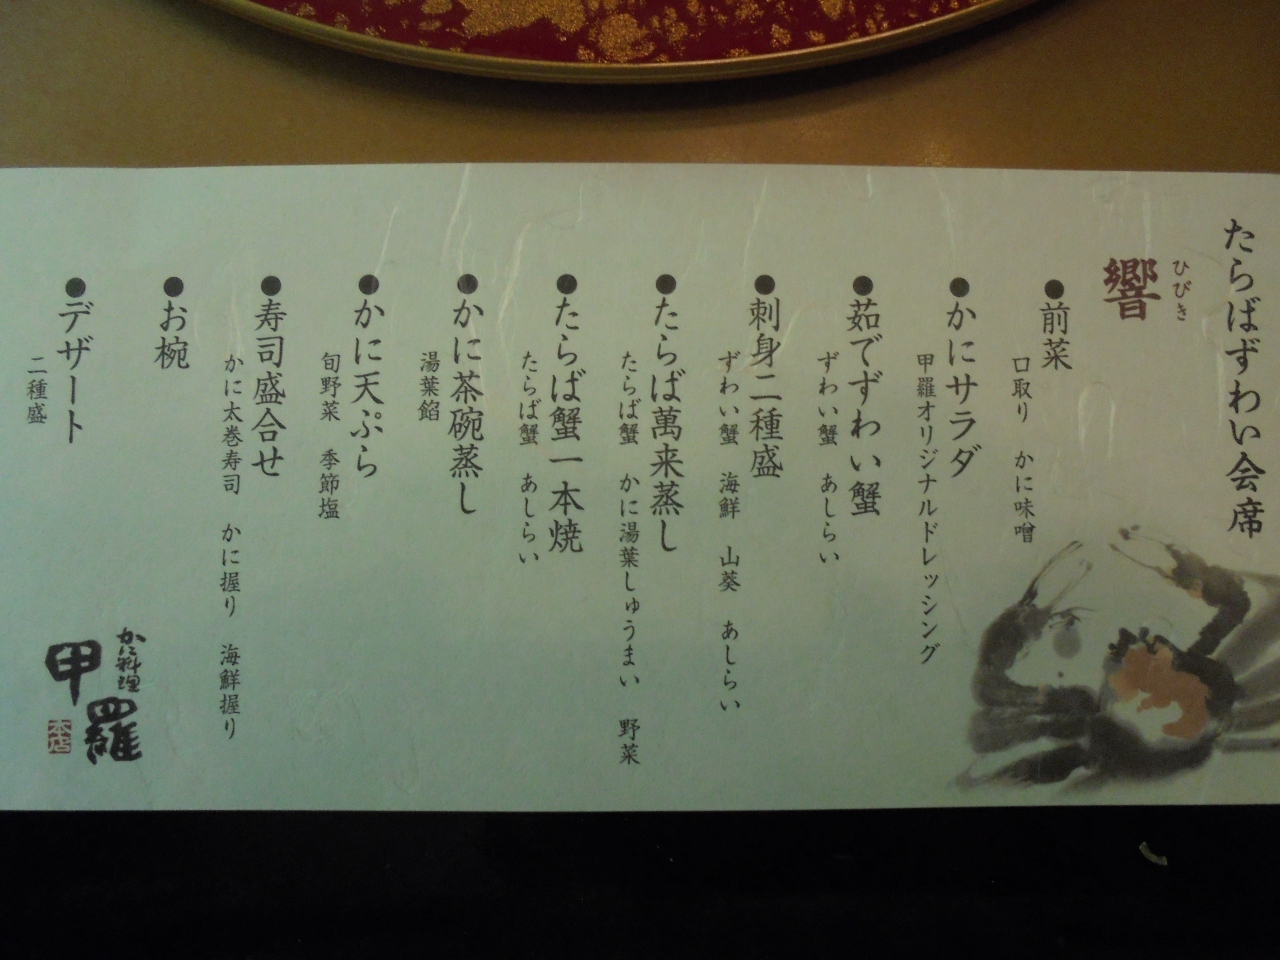 たらばずわい会席
ひびき
響
●前菜
口取り　かに味噌
●かにサラダ
甲羅オリジナルドレッシング
●茹でずわい蟹
ずわい蟹　あしらい
●刺身二種盛
ずわい蟹　海鮮　山葵　あしらい
●たらば萬来蒸し
たらば蟹　かに湯葉しゅうまい　野菜
●たらば蟹一本焼
たらば蟹　あしらい
●かに茶碗蒸し
湯葉餡
●かに天ぷら
旬野菜　季節塩
●寿司盛合せ
かに太巻寿司　かに握り　海鮮握り
●お椀
●デザート
二種盛
かに料理
甲羅
本店